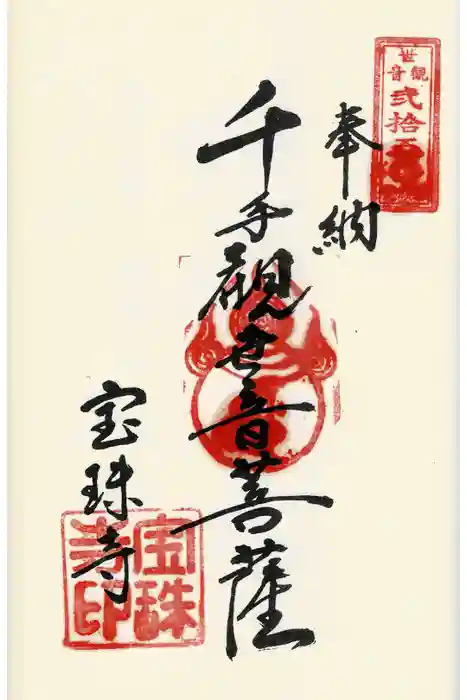 世
音觀
弐拾
奉納
千手観世音菩薩
宝珠寺
宝珠
寺印